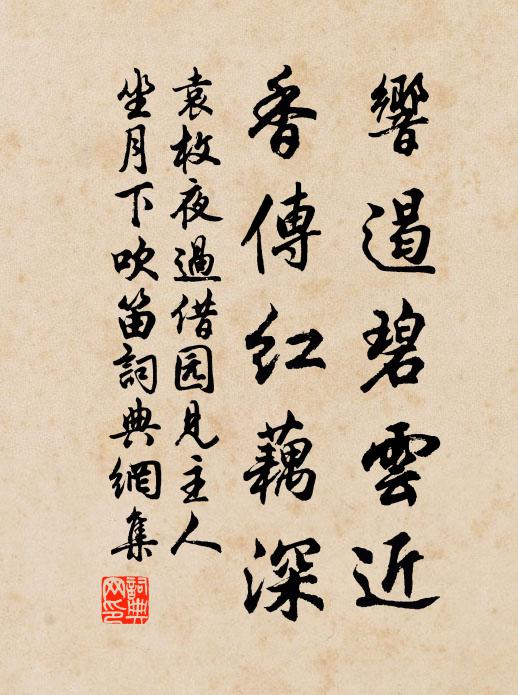 響遏碧雲近
香傳紅藕深
袁枚夜過借园見主人
坐月下吹笛詞典網集
詞典
网印